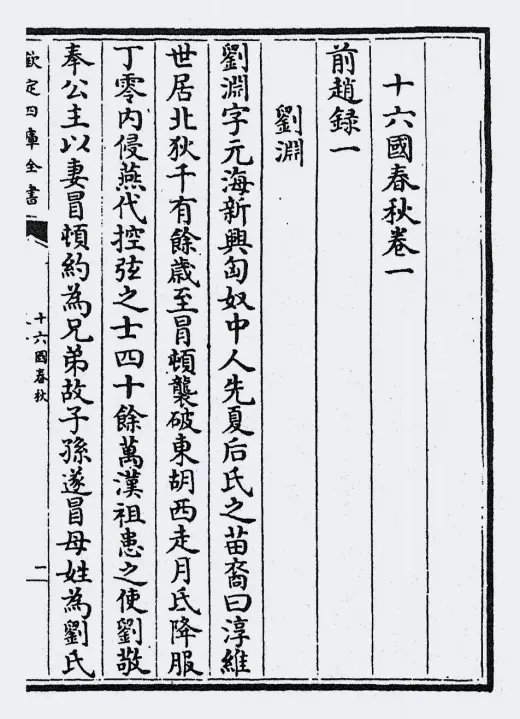 十六國春秋卷一
前趙録一
劉淵
劉淵字元海新興匈奴中人先夏后氏之苗裔曰淳維
世居北狄千有餘歳至冒頓襲破東胡西走月氏降服
丁零内侵燕代控弦之士四十餘萬漢祖患之使劉敬
奉公主以妻冒頓約為兄弟故子孫遂冒母姓為劉氏
欽定四庫全書
十六國春秋